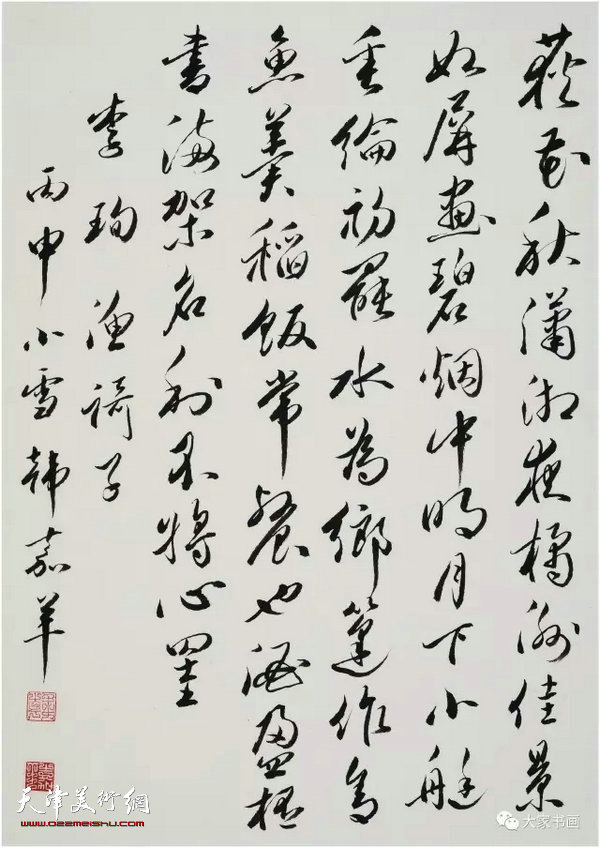 荻花秋瀟湘夜橘洲佳景
如屏畫碧烟中明月下小艇
垂綸初罷水為鄉篷作舍
魚羹稻飯常餐也酒盈桮
書滿架名利不將心罣
李珣 漁謌子
丙申小雪韩嘉羊
天津美術網
www.022meishu.com
大家书画